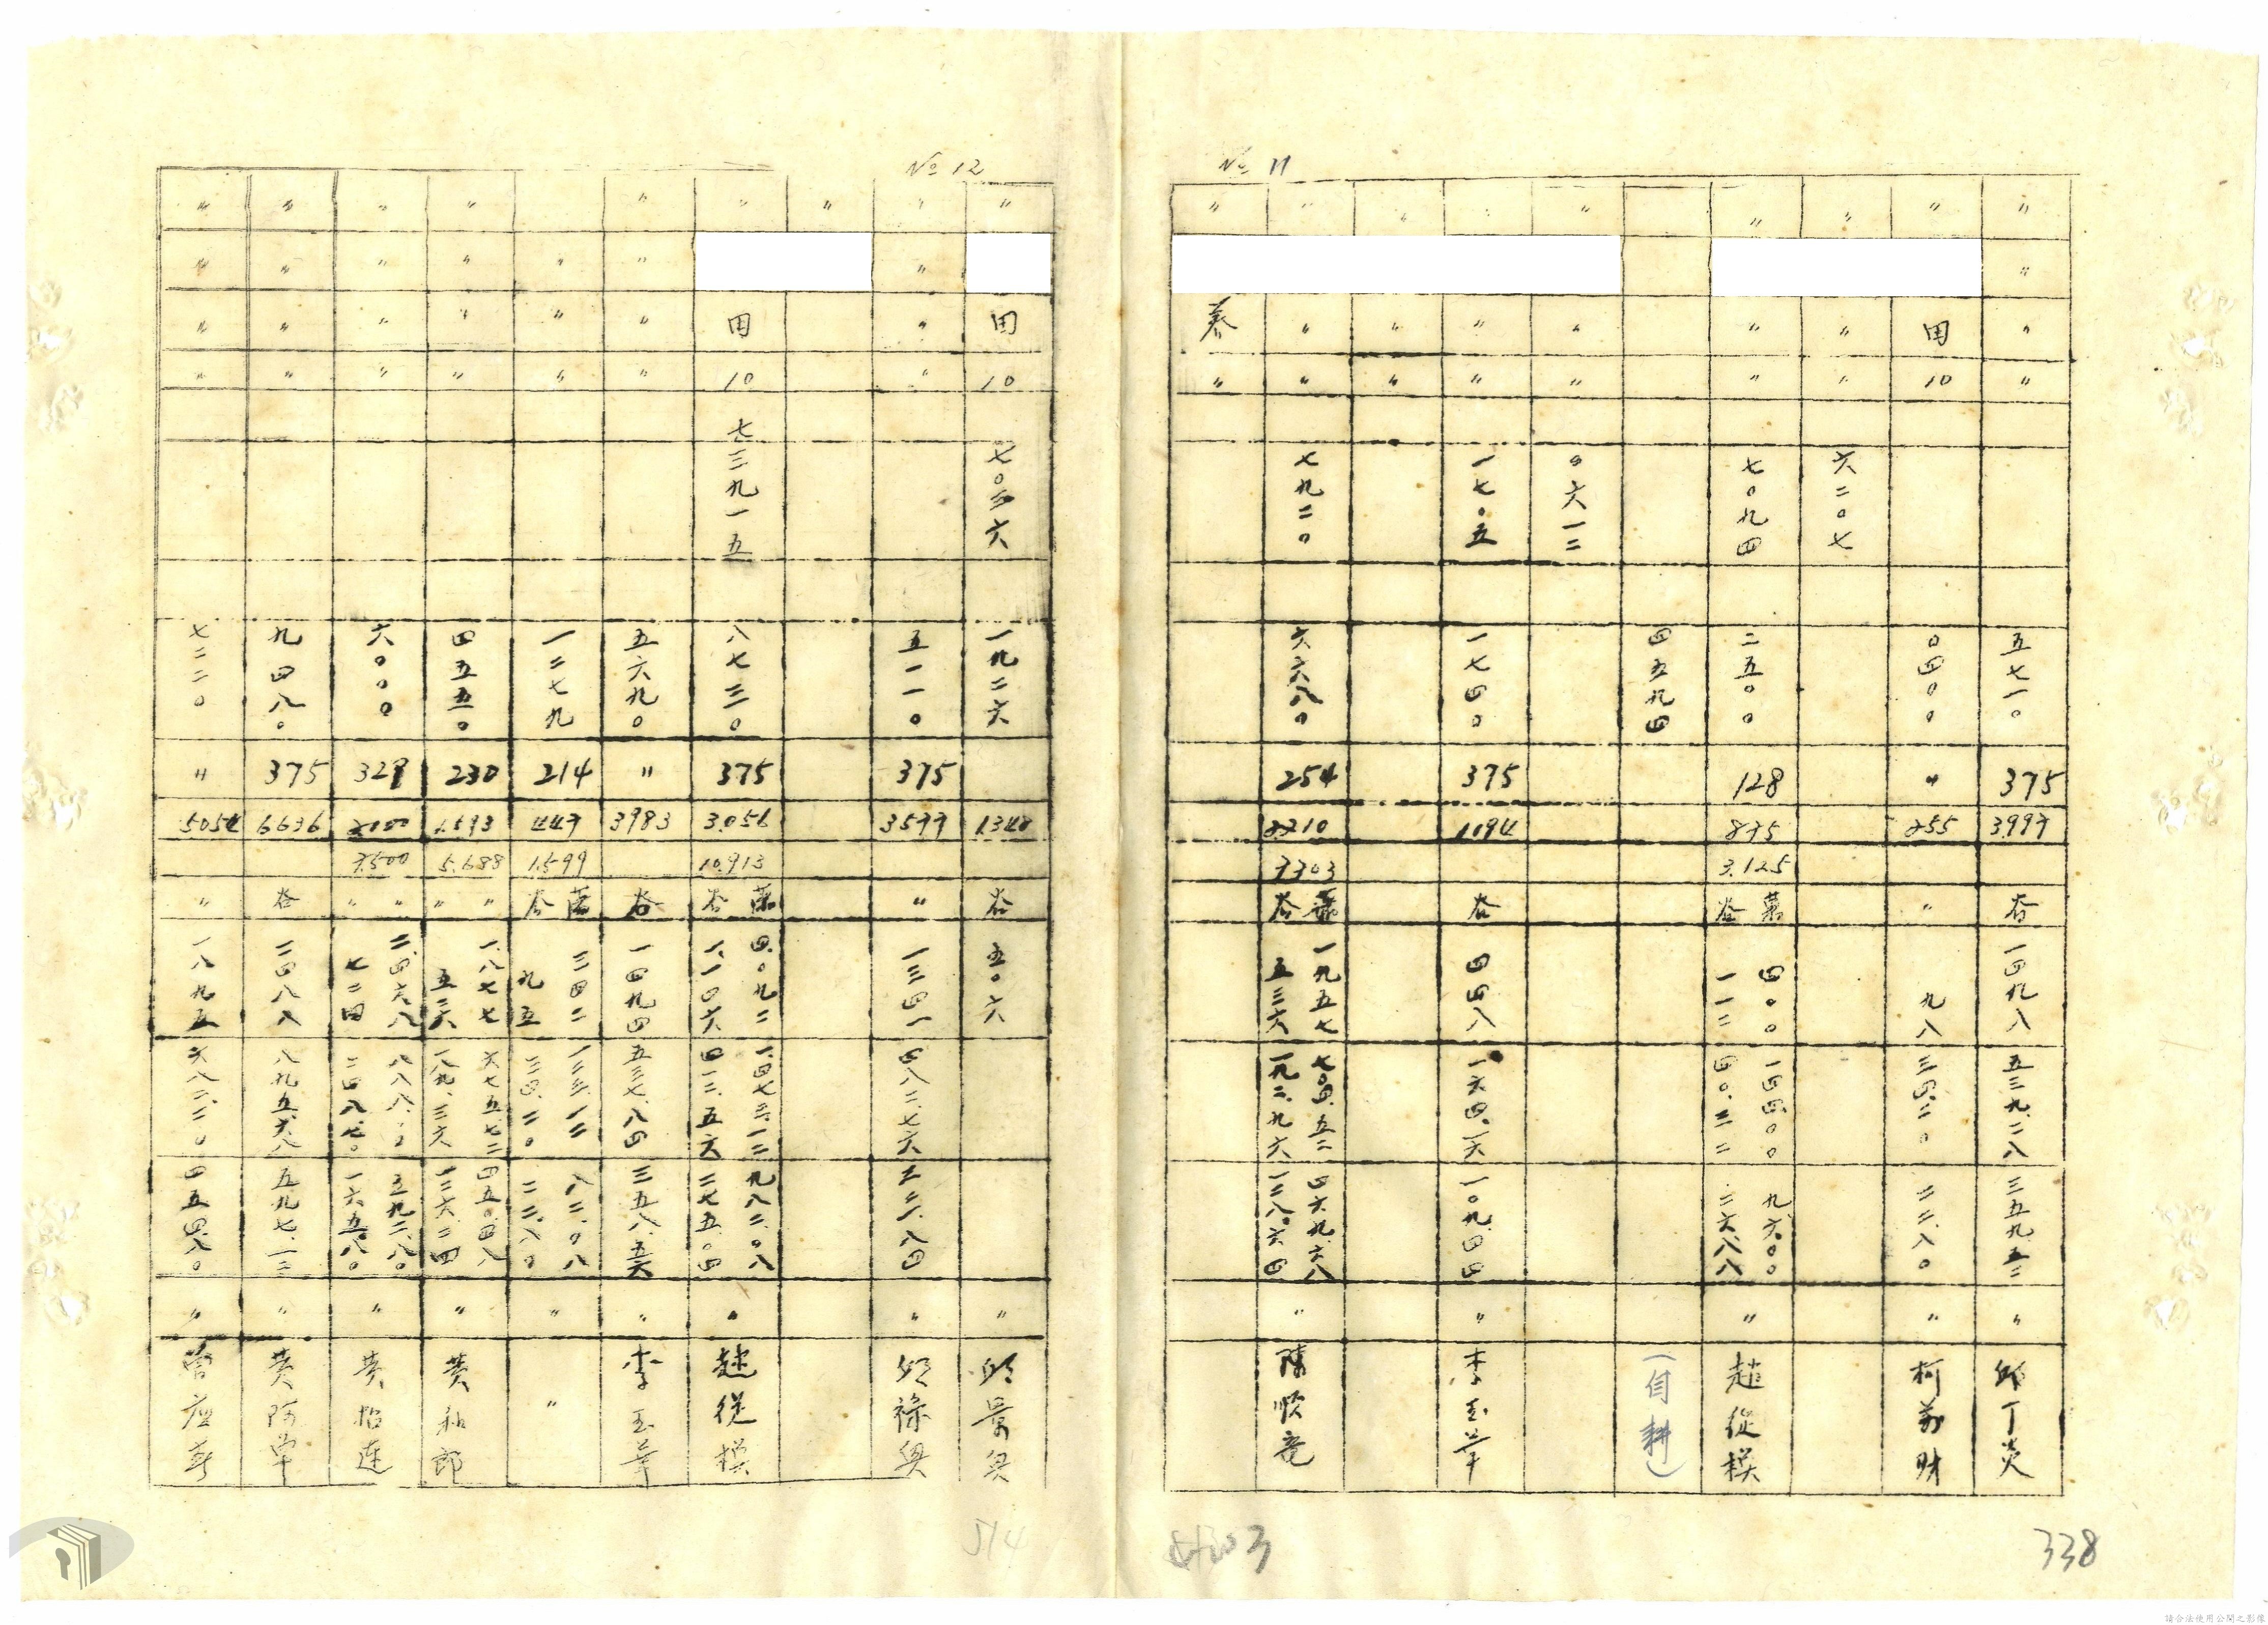 No 11
〃 〃 〃 375 3.997 谷 〃 邱丁炎
五七一〇
一四九八
五三九.二八
三五九.五二
〃 田 10 〃 255 〃 〃 柯萬財
〇四〇〇
九八
三四.二〇
二二.八〇
〃 〃 〃
六二〇七
〃 〃 〃 128 875 3.125 谷 〃 趙従模
七〇九四
二五〇〇
四〇〇
一一二
一四四.〇〇
四〇.三二
九六.〇〇
二六.八八
四五九四
(自耕)
〃 〃 〃
〇六一二
〃 〃 375 1.094 谷 〃 李玉華
一七〇五
一七四〇
四四八
一六四.一六
一〇九.四四
〃 〃 〃
〃 〃 〃 254 7303 谷 〃 陳順竜
七九二〇
六六八〇
一九五七
五三六
七〇四.五二
一九二.九六
四六九.六八
一二八.六四
〃 〃
338
No 12
〃 田 10 1.348 谷 〃 邱景興
一九二六
五〇六
〃 〃 〃 375 3577 〃 〃 邱祿興
五一一〇
一三四一
四八二.七六
三二一.八四
〃
田 10 375 3.056 10.913 谷 趙従模
七三九一五
八七三〇
四.〇九二
一.一四六
一.四七三.一二
四一二.五六
九八二.〇八
二七五.〇四
〃 〃 〃 〃 〃 3983 谷 〃 李玉華
五六九〇
一四九四
五三七.八四
三五八.五六
〃 〃 〃 214 447 1.599 谷 〃 〃
一二七九
三四二
九五
一二三.一二
三四.二〇
八二.〇八
二二.八〇
〃 〃 〃 〃 230 5.688 〃 〃 〃 黄和郎
四五五〇
一.八七七
五二六
六七五.七二
一八九.三六
四五〇.四八
一二六.二四
〃 〃 〃 〃 7.500 〃 〃 〃
六〇〇〇
二.四六八
七二四
五九二.八〇
一六五.八〇
〃 〃 〃 〃 375 6636 谷 〃
九四八〇
二四八八
八九五.六八
五九七.一二
〃 〃 〃 〃 〃 5054 〃 〃
七二二〇
一八九五
六八二.二〇
四五四.八〇
514
請合法使用公開之影像